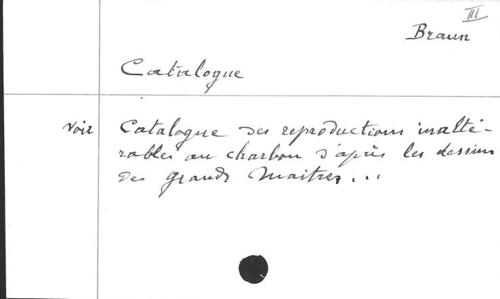 III
Braun
Catalogue
Voir Catalogue des reproductions inalté-
rables au charbon d'après les dessins
des grands Maitres...